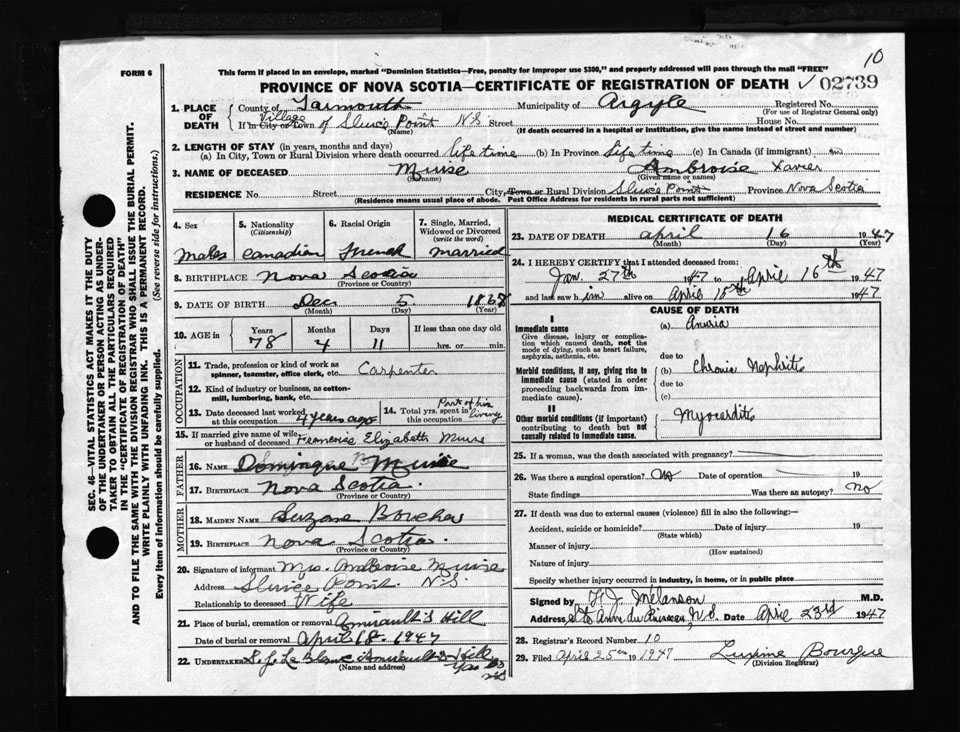 10
FORM 6
This form if placed in an envelope, marked "Dominion Statistics—Free, penalty for improper use $300," and properly addressed will pass through the mail "FREE"
PROVINCE OF NOVA SCOTIA—CERTIFICATE OF REGISTRATION OF DEATH ✓ 02739
SEC. 46—VITAL STATISTICS ACT MAKES IT THE DUTY
OF THE UNDERTAKER OR PERSON ACTING AS UNDER-
TAKER TO OBTAIN ALL THE PARTICULARS REQUIRED
IN THE "CERTIFICATE OF REGISTRATION OF DEATH"
AND TO FILE THE SAME WITH THE DIVISION REGISTRAR WHO SHALL ISSUE THE BURIAL PERMIT.
WRITE PLAINLY WITH UNFADING INK. THIS IS A PERMANENT RECORD.
Every item of information should be carefully supplied. (See reverse side for instructions.)
1. PLACE OF DEATH County of Yarmouth Municipality of Argyle Registered No.
(For use of Registrar General only)
Village
If in City or Town of Sluice Point N.S Street House No.
(Name) (If death occurred in a hospital or institution, give the name instead of street and number)
2. LENGTH OF STAY (in years, months and days)
(a) In City, Town or Rural Division where death occurred life time (b) In Province life time (c) In Canada (if immigrant)
3. NAME OF DECEASED Muise Ambroise Xavier
(Surname) (Given name or names)
RESIDENCE No. Street City, Town or Rural Division Sluice Point Province Nova Scotia
(Residence means usual place of abode. Post Office Address for residents in rural parts not sufficient)
4. Sex 5. Nationality (Citizenship) 6. Racial Origin 7. Single, Married, Widowed or Divorced (write the word)
Male Canadian French married
8. BIRTHPLACE Nova Scotia
(Province or Country)
9. DATE OF BIRTH Dec 5 1868
(Month) (Day) (Year)
10. AGE in Years Months Days If less than one day old
78 4 11 hrs. or min.
OCCUPATION
11. Trade, profession or kind of work as spinner, teamster, office clerk, etc. Carpenter
12. Kind of industry or business, as cotton-mill, lumbering, bank, etc.
13. Date deceased last worked at this occupation 4 years ago 14. Total yrs. spent in this occupation Part of his living
15. If married give name of wife or husband of deceased Elizabeth Muise
FATHER
16. NAME Dominque Muise
17. BIRTHPLACE Nova Scotia
(Province or Country)
MOTHER
18. MAIDEN NAME Suzane
19. BIRTHPLACE Nova Scotia
(Province or Country)
20. Signature of informant Mrs. Ambroise Muise
Address Sluice Point. N.S.
Relationship to deceased Wife
21. Place of burial, cremation or removal Amirault's Hill
Date of burial or removal April 18. 1947
22. UNDERTAKER Le Blanc Amirault's Hill
(Name and address) Yar Co
NS
MEDICAL CERTIFICATE OF DEATH
23. DATE OF DEATH april 16 1947
(Month) (Day) (Year)
24. I HEREBY CERTIFY that I attended deceased from:
Jan. 27th 1947 to April 16th 1947
and last saw him alive on April 15th 1947
CAUSE OF DEATH
I
Immediate cause
Give disease, injury or complication which caused death, not the mode of dying, such as heart failure, asphyxia, asthenia, etc.
(a) Anuria
due to
Morbid conditions, if any, giving rise to immediate cause (stated in order proceeding backwards from immediate cause).
(b) Chronic Nephritis
due to
(c)
II
Other morbid conditions (if important) contributing to death but not causally related to immediate cause.
Myocarditis
25. If a woman, was the death associated with pregnancy?
26. Was there a surgical operation? No Date of operation 19
State findings Was there an autopsy? No
27. If death was due to external causes (violence) fill in also the following:—
Accident, suicide or homicide? Date of injury 19
(State which)
Manner of injury
(How sustained)
Nature of injury
Specify whether injury occurred in industry, in home, or in public place
Signed by H. J. Melanson M.D.
Address Ste Anne du Ruisseau, N.S. Date April 23rd 1947
28. Registrar's Record Number 10
29. Filed April 25th 19 1947 Bourque
(Division Registrar)